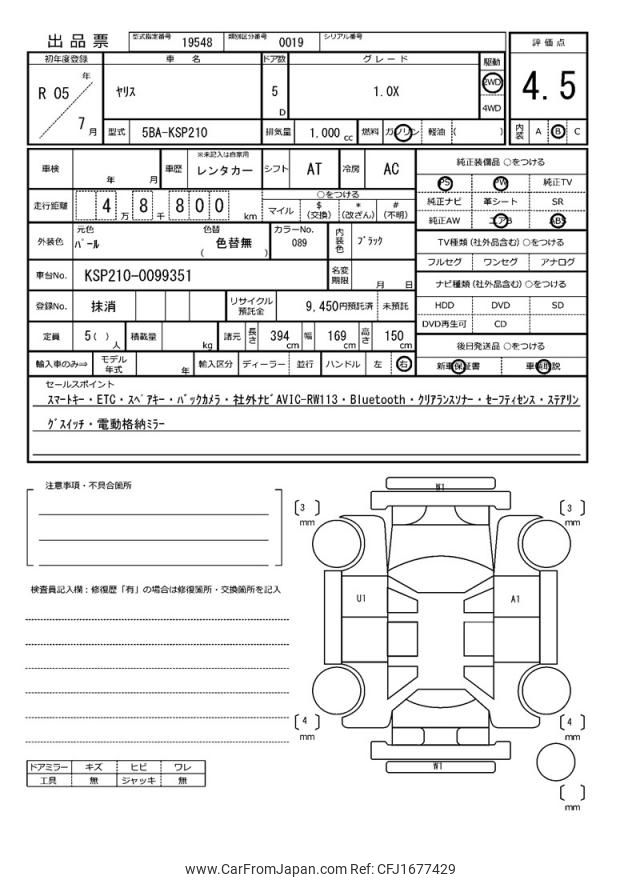 出品票 型式指定番号 19548 類別区分番号 0019 シリアル番号
初年度登録 車名 ドア数 グレード 駆動 評価点
R 05 年 7 月 ヤリス 5 D 1.0X 2WD 4WD 4.5
型式 5BA-KSP210 排気量 1,000 cc 燃料 ガソリン 軽油 ( ) 内装 A B C
車検 年 月 車歴 ※未記入は自家用 レンタカー シフト AT 冷房 AC
走行距離 4 万 8 千 8 0 0 km ○をつける
マイル $ (交換) * (改ざん) # (不明)
外装色 元色 パール 色替 色替無 ( ) カラーNo. 089 内装色 ブラック
車台No. KSP210-0099351 名変期限 月 日
登録No. 抹消 リサイクル預託金 9,450円預託済 未預託
定員 5( ) 人 積載量 kg 諸元 長さ 394 cm 幅 169 cm 高さ 150 cm
輸入車のみ⇒ モデル年式 年 輸入区分 ディーラー 並行 ハンドル 左 右
純正装備品 ○をつける
PS PW 純正TV
純正ナビ 革シート SR
純正AW エアB ABS
TV種類(社外品含む) ○をつける
フルセグ ワンセグ アナログ
ナビ種類(社外品含む) ○をつける
HDD DVD SD
DVD再生可 CD
後日発送品 ○をつける
新車保証書 車輌取説
セールスポイント
スマートキー・ETC・スペアキー・バックカメラ・社外ナビAVIC-RW113・Bluetooth・クリアランスソナー・セーフティセンス・ステアリン
グスイッチ・電動格納ミラー
注意事項・不具合箇所
検査員記入欄：修復歴「有」の場合は修復箇所・交換箇所を記入
ドアミラー キズ ヒビ ワレ
工具 無 ジャッキ 無
W1
[ 3 ] mm
[ 3 ] mm
U1
A1
[ 4 ] mm
[ 4 ] mm
W1
[ ] mm
www.CarFromJapan.com Ref: CFJ1677429